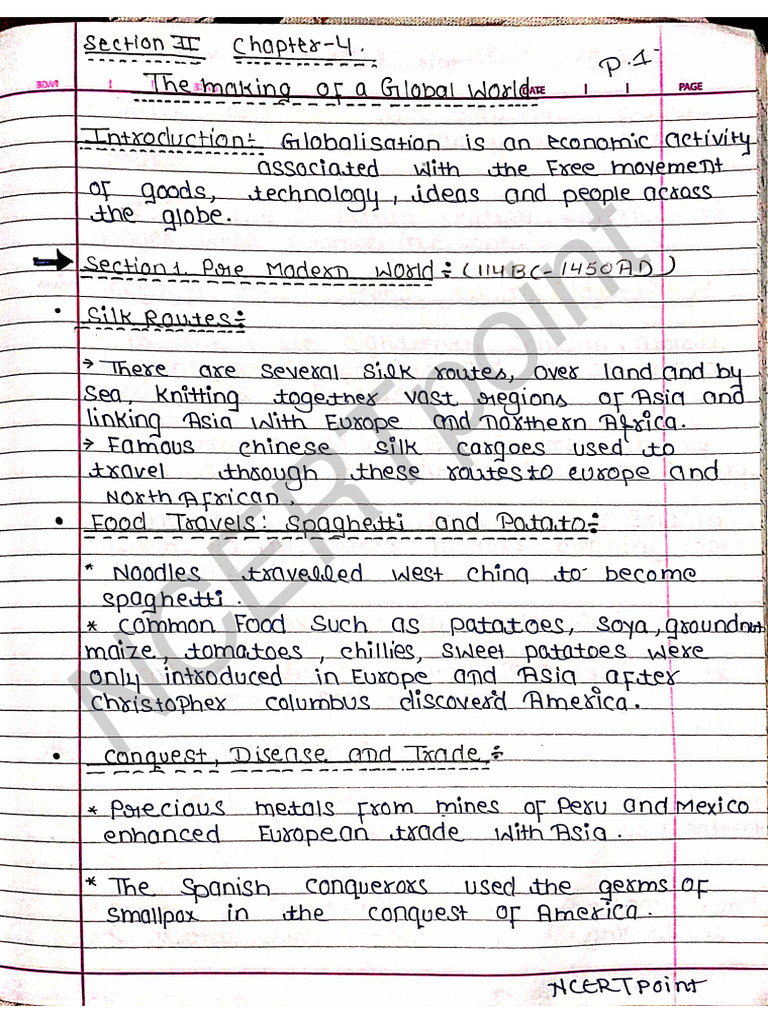 Section II Chapter-4.
P.1
The making of a Global World
PAGE DATE PAGE
Introduction:- Globalisation is an economic activity
associated with the Free movement
of goods, technology, ideas and people across
the globe.
Section 1. Pre Modern World÷ (114BC-1450AD)
• Silk Routes÷
→ There are several silk routes, over land and by
sea, knitting together vast regions of Asia and
linking Asia with Europe and northern Africa.
→ Famous chinese silk cargoes used to
travel through these routes to europe and
North African.
• Food Travels: Spaghetti and Patato÷
* Noodles travelled west china to become
spaghetti.
* common Food such as patatoes, soya, groundnut
maize, tomatoes, chillies, sweet patatoes were
only introduced in Europe and Asia after
christopher columbus discover'd America.
• conquest, Disease and Trade÷
* Precious metals from mines of Peru and Mexico
enhanced European trade with Asia.
* The Spanish conquerors used the germs of
smallpox in the conquest of America.
NCERTpoint
NCERTpoint